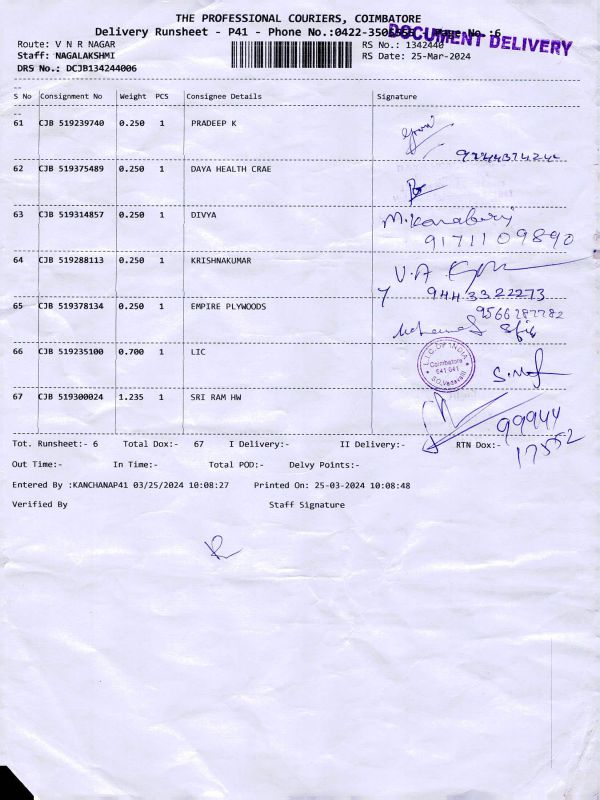 THE PROFESSIONAL COURIERS, COIMBATORE
Delivery Runsheet - P41 - Phone No.:0422-350 Page No.:6
DOCUMENT DELIVERY
Route: V N R NAGAR
RS No.: 1342440
Staff: NAGALAKSHMI
RS Date: 25-Mar-2024
DRS No.: DCJB134244006
S No Consignment No Weight PCS Consignee Details Signature
61 CJB 519239740 0.250 1 PRADEEP K
62 CJB 519375489 0.250 1 DAYA HEALTH CRAE
63 CJB 519314857 0.250 1 DIVYA
9171109890
64 CJB 519288113 0.250 1 KRISHNAKUMAR
V.A
9443322273
65 CJB 519378134 0.250 1 EMPIRE PLYWOODS
9566287782
66 CJB 519235100 0.700 1 LIC
L.I.C. OF INDIA
Coimbatore
641 041
67 CJB 519300024 1.235 1 SRI RAM HW
99944
17552
Tot. Runsheet:- 6 Total Dox:- 67 I Delivery:- II Delivery:- RTN Dox:-
Out Time:- In Time:- Total POD:- Delvy Points:-
Entered By :KANCHANAP41 03/25/2024 10:08:27 Printed On: 25-03-2024 10:08:48
Verified By Staff Signature